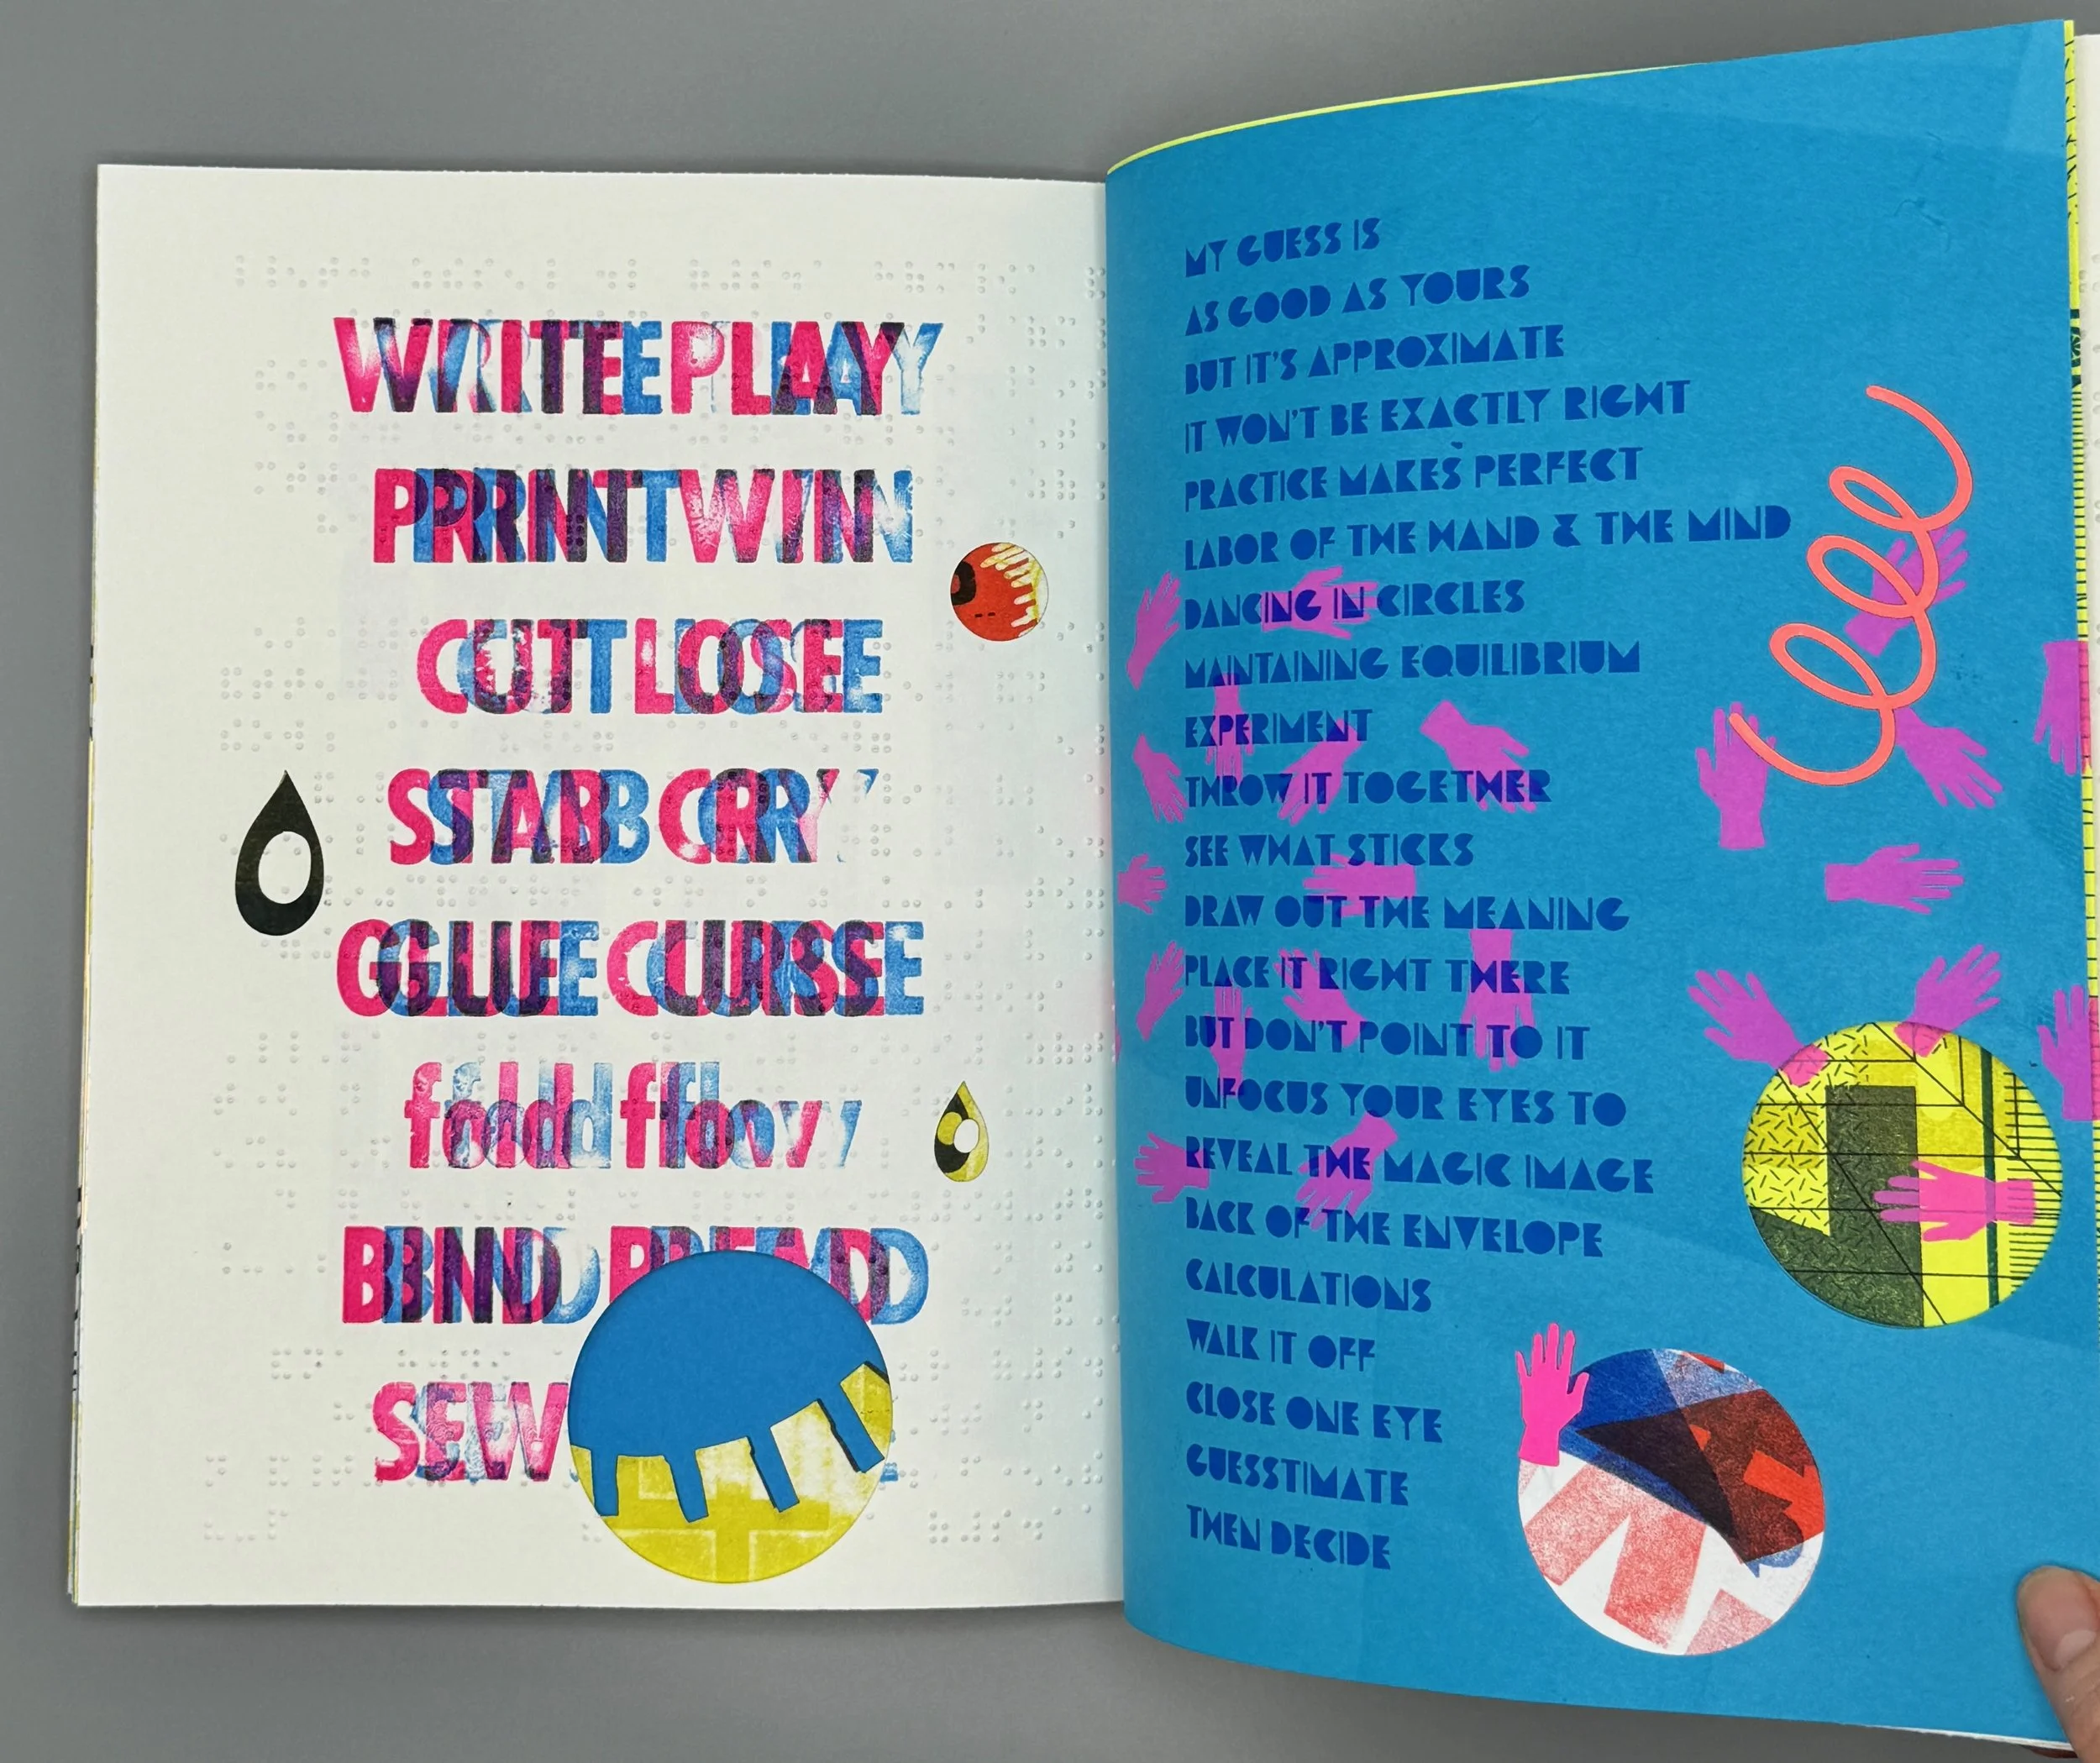 WRITE PLAY
PRINT WIN
CUT LOSE
STAB CRY
GLUE CURSE
fold flow
BIND
SEW
MY GUESS IS
AS GOOD AS YOURS
BUT IT'S APPROXIMATE
IT WON'T BE EXACTLY RIGHT
PRACTICE MAKES PERFECT
LABOR OF THE HAND & THE MIND
DANCING IN CIRCLES
MAINTAINING EQUILIBRIUM
EXPERIMENT
THROW IT TOGETHER
SEE WHAT STICKS
DRAW OUT THE MEANING
PLACE IT RIGHT THERE
BUT DON'T POINT TO IT
UNFOCUS YOUR EYES TO
REVEAL THE MAGIC IMAGE
BACK OF THE ENVELOPE
CALCULATIONS
WALK IT OFF
CLOSE ONE EYE
GUESSTIMATE
THEN DECIDE